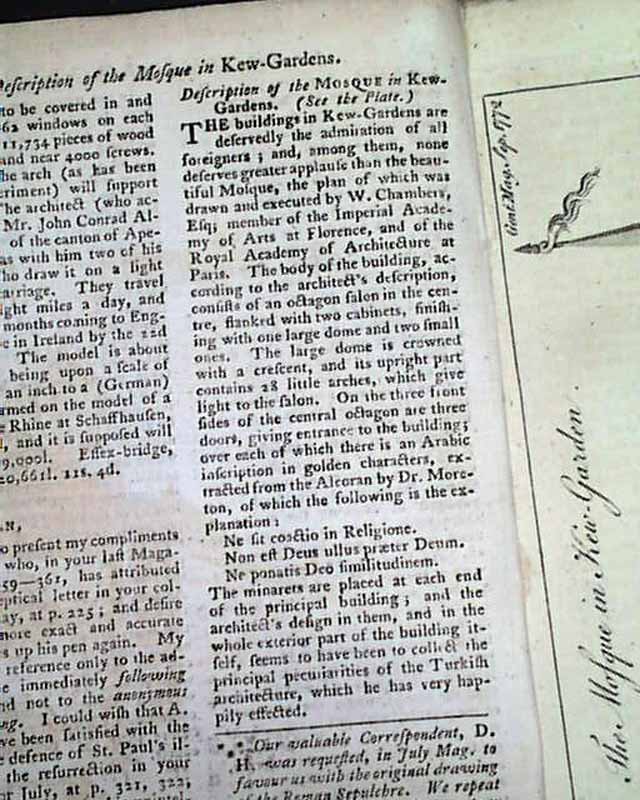 Description of the Mosque in Kew-Gardens.
to be covered in and
62 windows on each
11,734 pieces of wood
and near 4000 screws.
The arch (as has been
eriment) will support
The architect (who ac-
Mr. John Conrad Al-
of the canton of Ape-
as with him two of his
ho draw it on a light
arriage. They travel
ight miles a day, and
months coming to Eng-
e in Ireland by the 22d
The model is about
being upon a scale of
an inch to a (German)
rmed on the model of a
e Rhine at Schaffhausen,
, and it is supposed will
9,000l. Essex-bridge,
20,661l. 11s. 4d.
AN,
o present my compliments
who, in your last Maga-
59—361, has attributed
eptical letter in your col-
ay, at p. 225; and desire
more exact and accurate
s up his pen again. My
reference only to the ad-
e immediately following
nd not to the anonymous
ng. I could wish that A.
ve been satisfied with the
e defence of St. Paul's il-
the resurrection in your
r July, at p. 321, 322;
Description of the MOSQUE in Kew-
Gardens. (See the Plate.)
THE buildings in Kew-Gardens are
deservedly the admiration of all
foreigners; and, among them, none
deserves greater applause than the beau-
tiful Mosque, the plan of which was
drawn and executed by W. Chambers,
Esq; member of the Imperial Acade-
my of Arts at Florence, and of the
Royal Academy of Architecture at
Paris. The body of the building, ac-
cording to the architect's description,
consists of an octagon salon in the cen-
tre, flanked with two cabinets, finish-
ing with one large dome and two small
ones. The large dome is crowned
with a crescent, and its upright part
contains 28 little arches, which give
light to the salon. On the three front
sides of the central octagon are three
doors, giving entrance to the building;
over each of which there is an Arabic
inscription in golden characters, ex-
tracted from the Alcoran by Dr. More-
ton, of which the following is the ex-
planation:
Ne sit coactio in Religione.
Non est Deus ullus præter Deum.
Ne ponatis Deo similitudinem.
The minarets are placed at each end
of the principal building; and the
architect's design in them, and in the
whole exterior part of the building it-
self, seems to have been to collect the
principal peculiarities of the Turkish
architecture, which he has very hap-
pily effected.
*** Our valuable Correspondent, D.
H. was requested, in July Mag. to
favour us with the original drawing
of the Roman Sepulchre. We repeat
Gent. Mag. Sep. 1772
The Mosque in Kew-Garden.